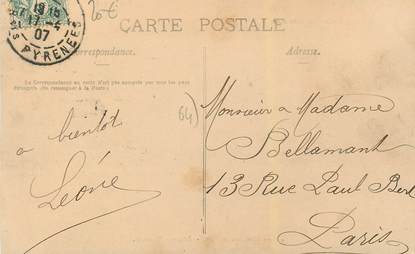 20€
CARTE POSTALE
19 15
17-4
07
PYRENEES
Correspondance.
Adresse.
La Correspondance au recto n'est pas acceptée par tous les pays
étrangers. (Se renseigner à la Poste.)
64)
a bientôt
Léonie
Monsieur & Madame
Bellamant
13 Rue Paul Bert
Paris